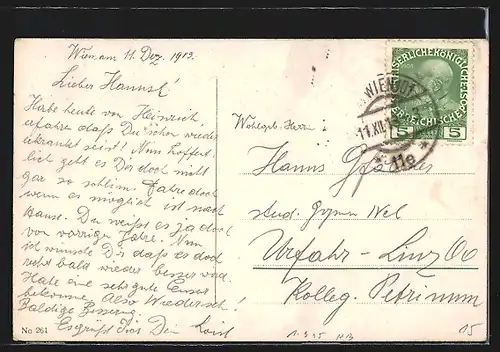 Wien am 11. Dez. 1913.
Lieber Hannsl!
Habe heute von Heinrich
erfahre daß Du schon wieder
erkrankt seist! Nun hoffent-
lich geht es Dir doch nicht
gar so schlim. Fahre doch
wenn es möglich ist nach
Hause. Du weißt es ja doch
von vorrigen Jahre. Nun
ich wünsche Dir daß es doch
recht bald wieder besser wird.
Habe eine sehr gute Censur
bekomme. Also Wiedersehn!
Baldige Besserung.
Es grüßt Dein
No 261
Wohlgeb. Herrn
Hanns
stud. Gymn
Urfahr - Linz Oö
Kolleg. Petrinum
KAISERLICHE KÖNIGLICHE
ÖSTERREICHISCHE POST
5 5
WIEN
11.XII.1
11e
15